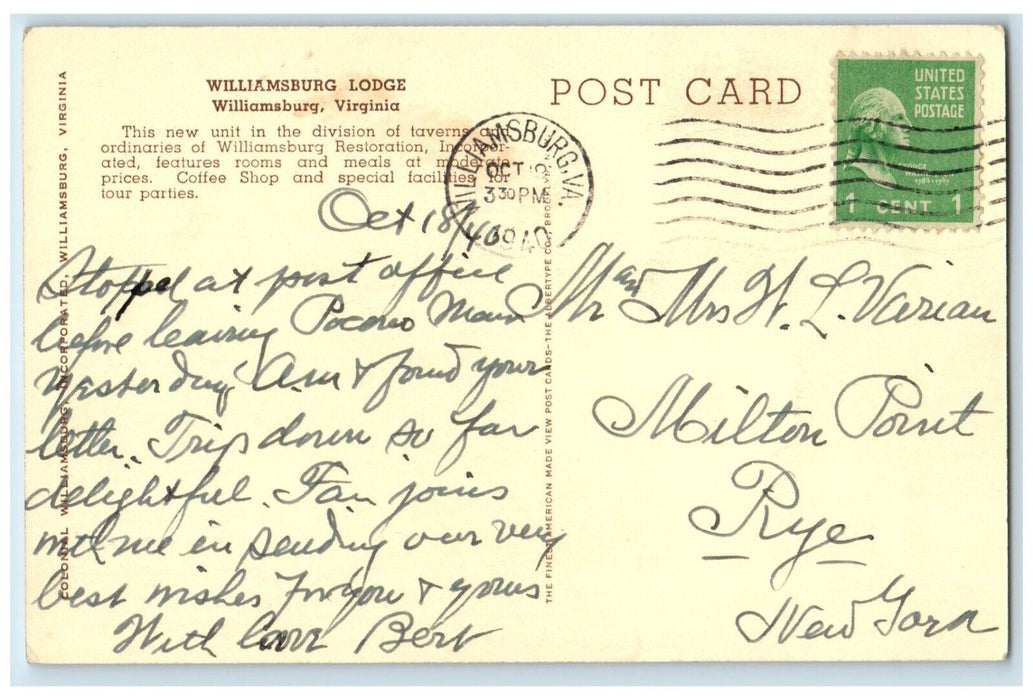 WILLIAMSBURG LODGE
Williamsburg, Virginia
This new unit in the division of taverns and
ordinaries of Williamsburg Restoration, Incorpor-
ated, features rooms and meals at moderate
prices. Coffee Shop and special facilities for
tour parties.
Oct 18/40
Stopped at post office
before leaving Pocono Manor
yesterday A.M. & found your
letter. Trip down so far
delightful. Fan joins
with me in sending our very
best wishes for you & yours
With love Bert
COLONIAL WILLIAMSBURG, INCORPORATED, WILLIAMSBURG, VIRGINIA
THE FINEST AMERICAN MADE VIEW POST CARDS—THE ALBERTYPE CO., BROOKLYN
POST CARD
WILLIAMSBURG, VA.
OCT
3 30 PM
1940
UNITED
STATES
POSTAGE
GEORGE
1 CENT 1
Mr and Mrs H. L. Varian
Milton Point
Rye
New York